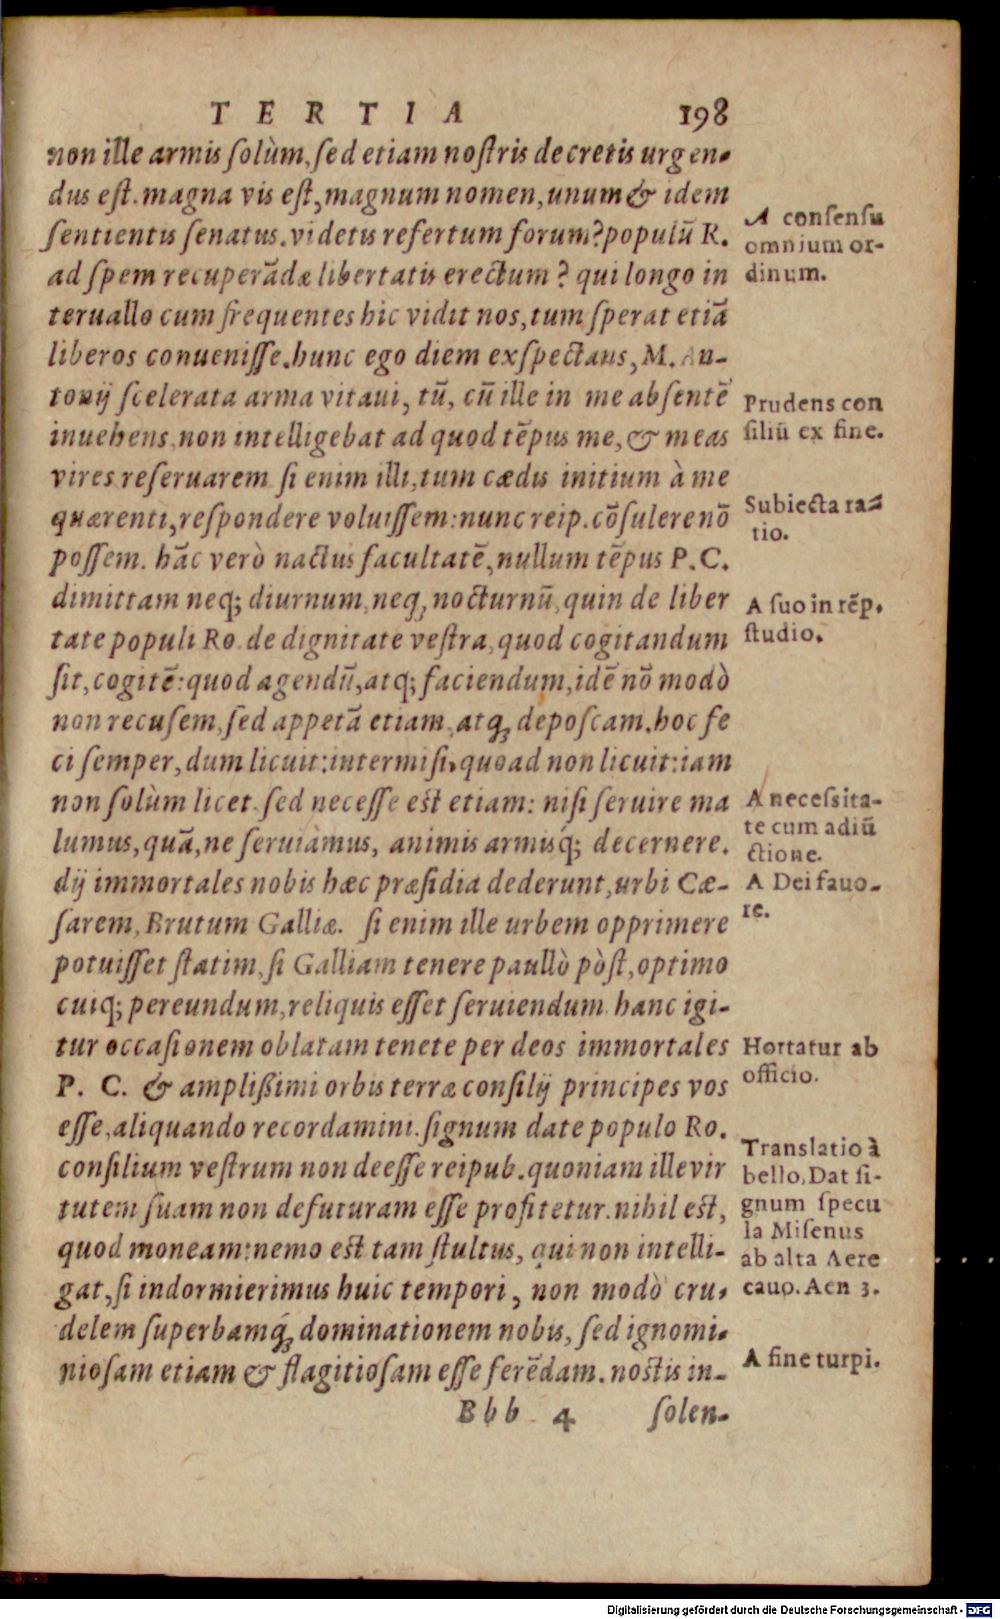 TERTIA 198
non ille armis ſolùm, ſed etiam noſtris decretis urgen-
dus eſt. magna vis eſt, magnum nomen, unum & idem
ſentientis ſenatus. videtis refertum forum? populū R.
ad ſpem recuperādæ libertatis erectum? qui longo in
teruallo cum frequentes hic vidit nos, tum ſperat etiā
liberos conueniſſe. hunc ego diem exſpectans, M. An-
tonij ſcelerata arma vitaui, tū, cū ille in me abſentē
inuehens, non intelligebat ad quod tēpus me, & meas
vires reſeruarem. ſi enim illi, tum cædis initium à me
quærenti, reſpondere voluiſſem: nunc reip. cōſulere nō
poſſem. hāc verò nactus facultatē, nullum tēpus P. C.
dimittam neq; diurnum, neq; nocturnū, quin de liber
tate populi Ro. de dignitate veſtra, quod cogitandum
ſit, cogitē: quod agendū, atq; faciendum, idē nō modò
non recuſem, ſed appetā etiam, atq; depoſcam. hoc fe
ci ſemper, dum licuit: intermiſi, quoad non licuit: iam
non ſolùm licet, ſed neceſſe est etiam: niſi ſeruire ma
lumus, quā, ne ſeruiamus, animis armisq́; decernere.
dij immortales nobis hæc præſidia dederunt, urbi Cæ-
ſarem, Brutum Galliæ. ſi enim ille urbem opprimere
potuiſſet ſtatim, ſi Galliam tenere paullò pòſt, optimo
cuiq; pereundum, reliquis eſſet ſeruiendum. hanc igi-
tur occaſionem oblatam tenete per deos immortales
P. C. & ampliſsimi orbis terræ conſilij principes vos
eſſe, aliquando recordamini. ſignum date populo Ro.
conſilium veſtrum non deeſſe reipub. quoniam ille vir
tutem ſuam non defuturam eſſe profitetur. nihil est,
quod moneam: nemo est tam ſtultus, qui non intelli-
gat, ſi indormierimus huic tempori, non modò cru-
delem ſuperbamq́; dominationem nobis, ſed ignomi-
nioſam etiam & flagitioſam eſſe ferēdam. noſtis in-
Bbb 4 ſolen-
A conſenſu
omnium or-
dinum.
Prudens con
ſiliū ex fine.
Subiecta ra-
tio.
A ſuo in rēp.
ſtudio.
A neceſsita-
te cum adiū
ctione.
A Dei fauo-
re.
Hortatur ab
officio.
Translatio à
bello, Dat ſi-
gnum ſpecu
la Miſenus
ab alta Aere
cauo. Aen 3.
A fine turpi.
Digitalisierung gefördert durch die Deutsche Forschungsgemeinschaft - DFG